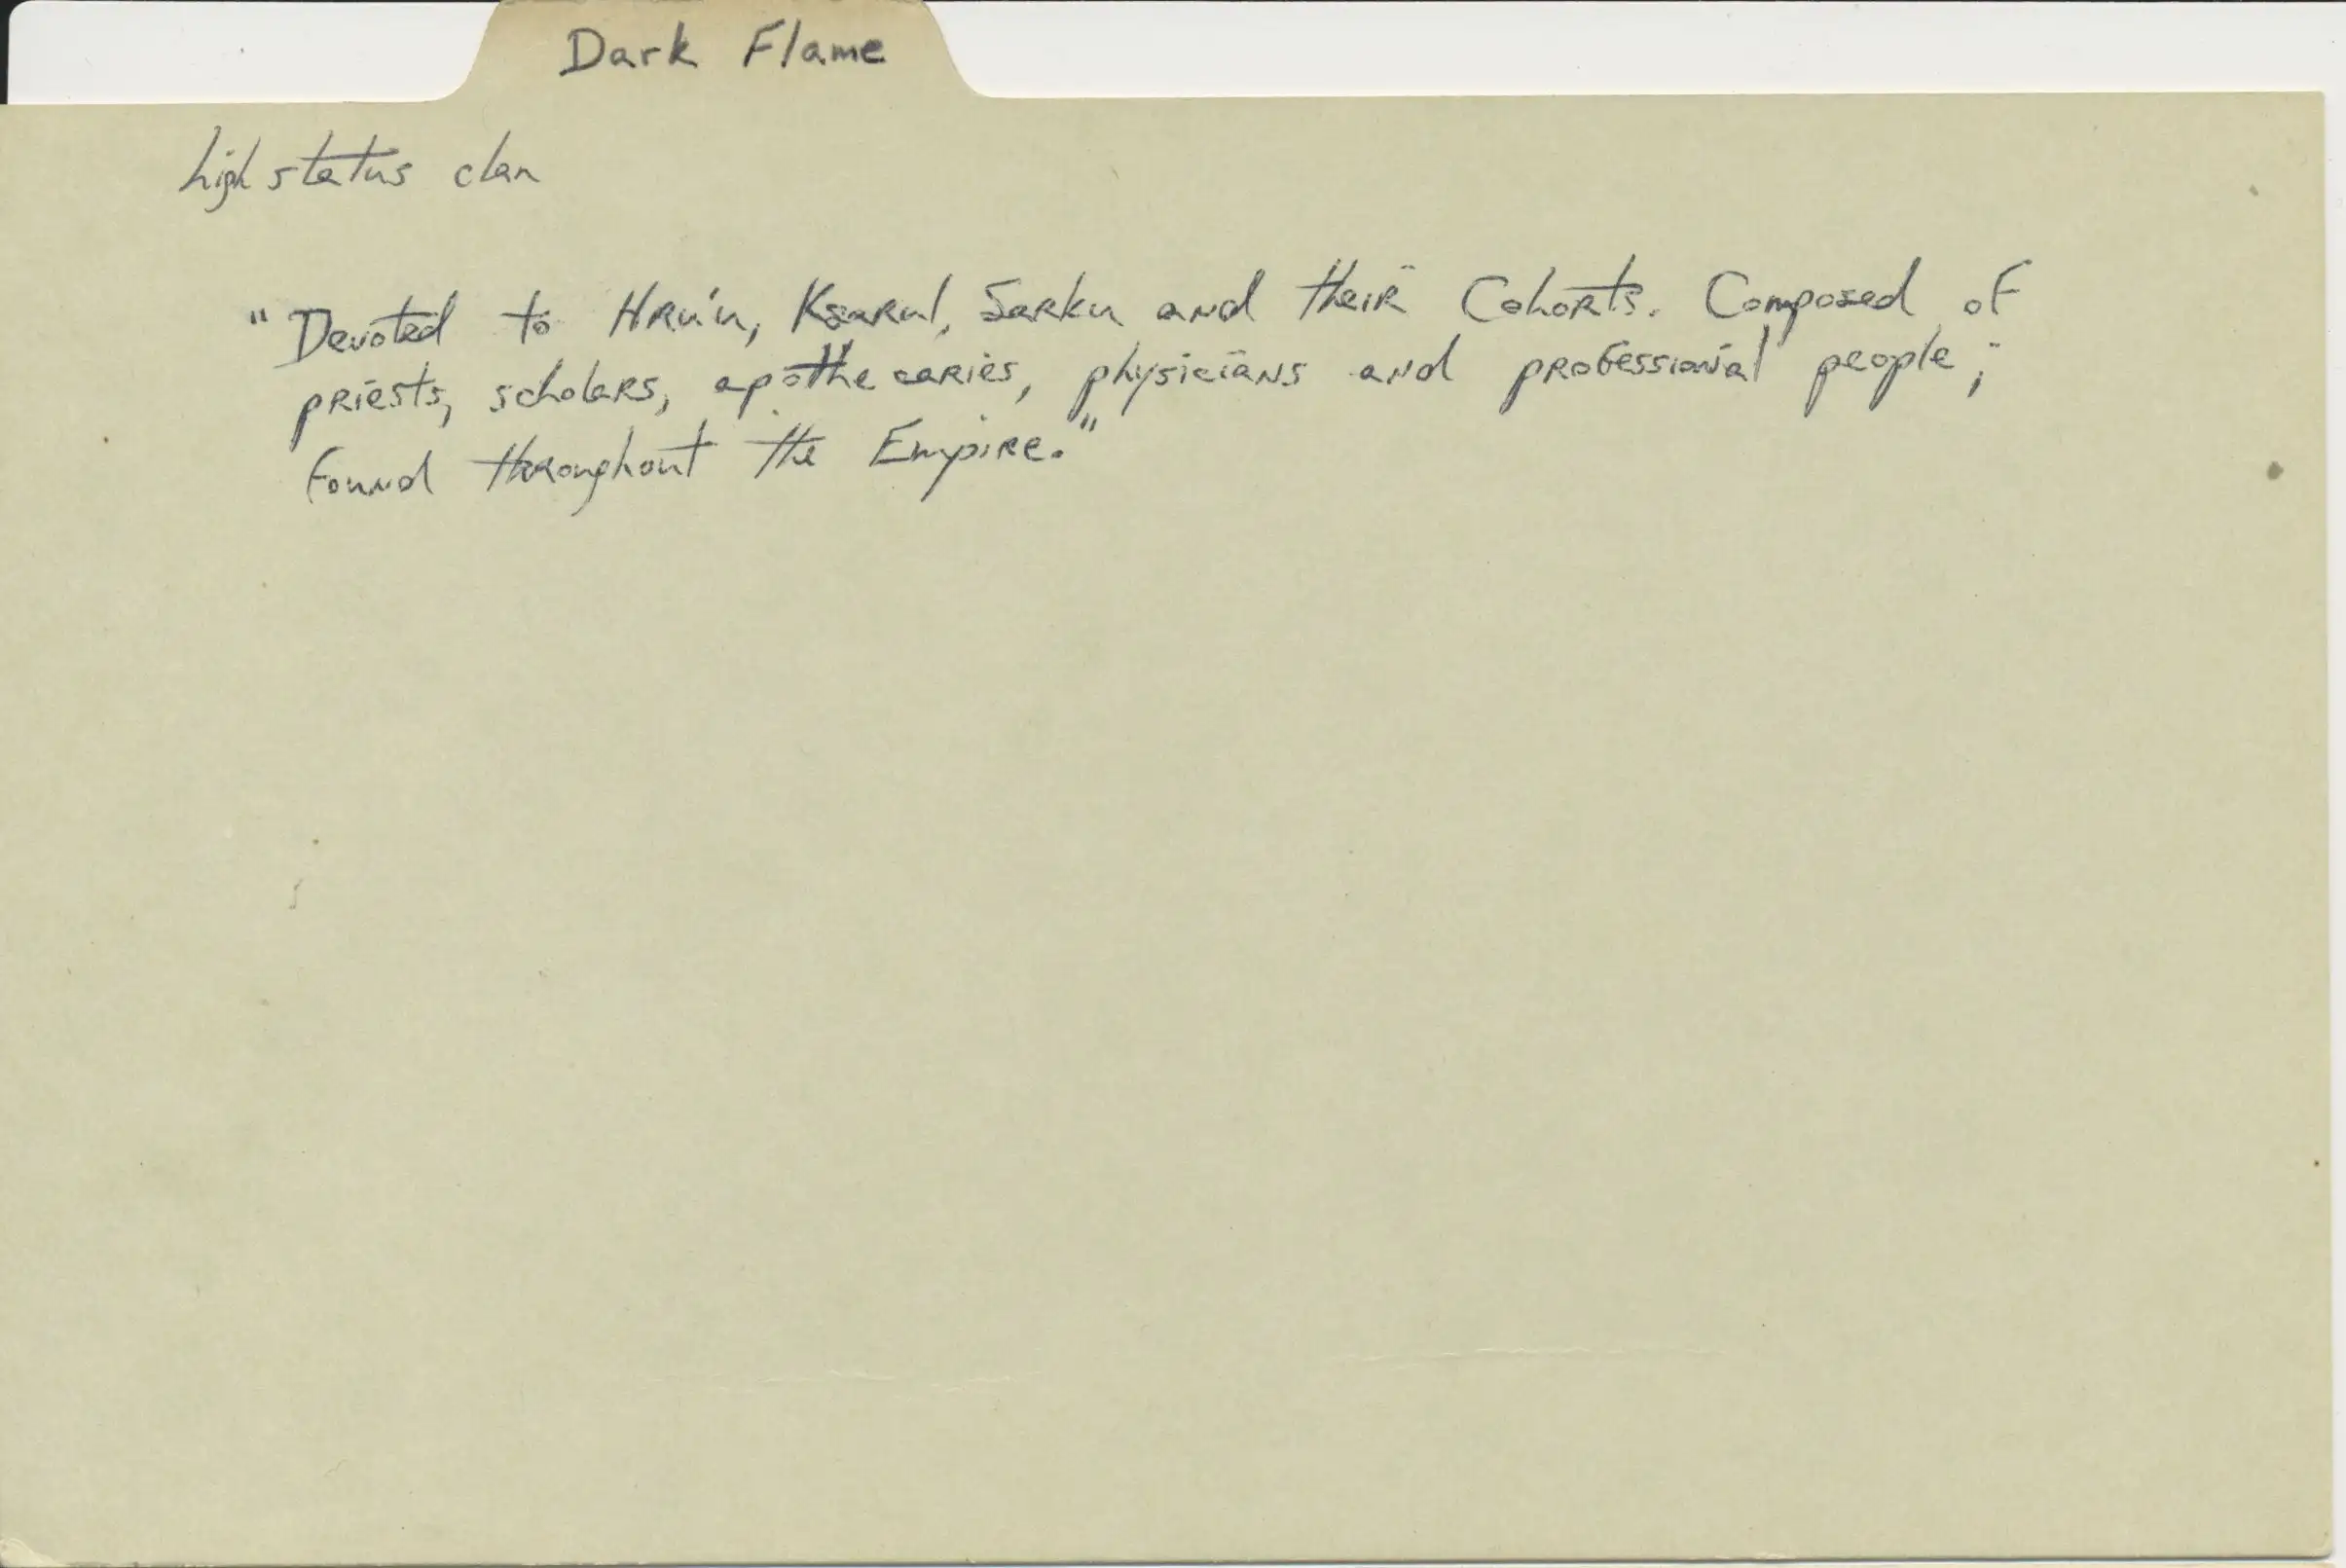 Dark Flame
high status clan
"Devoted to Hru'u, Ksarul, Sarku and their Cohorts. Composed of
priests, scholars, apothecaries, physicians and professional people;
found throughout the Empire."